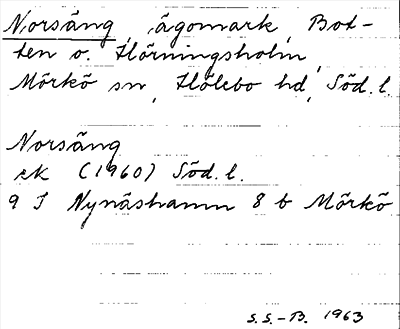 Norsäng, ägomark, Bot-
ten o. Hörningsholm,
Mörkö sn, Hölebo hd, Söd. l.
Norsäng
ek (1960) Söd. l.
9 I Nynäshamn 8 b Mörkö
S.S.-B. 1963